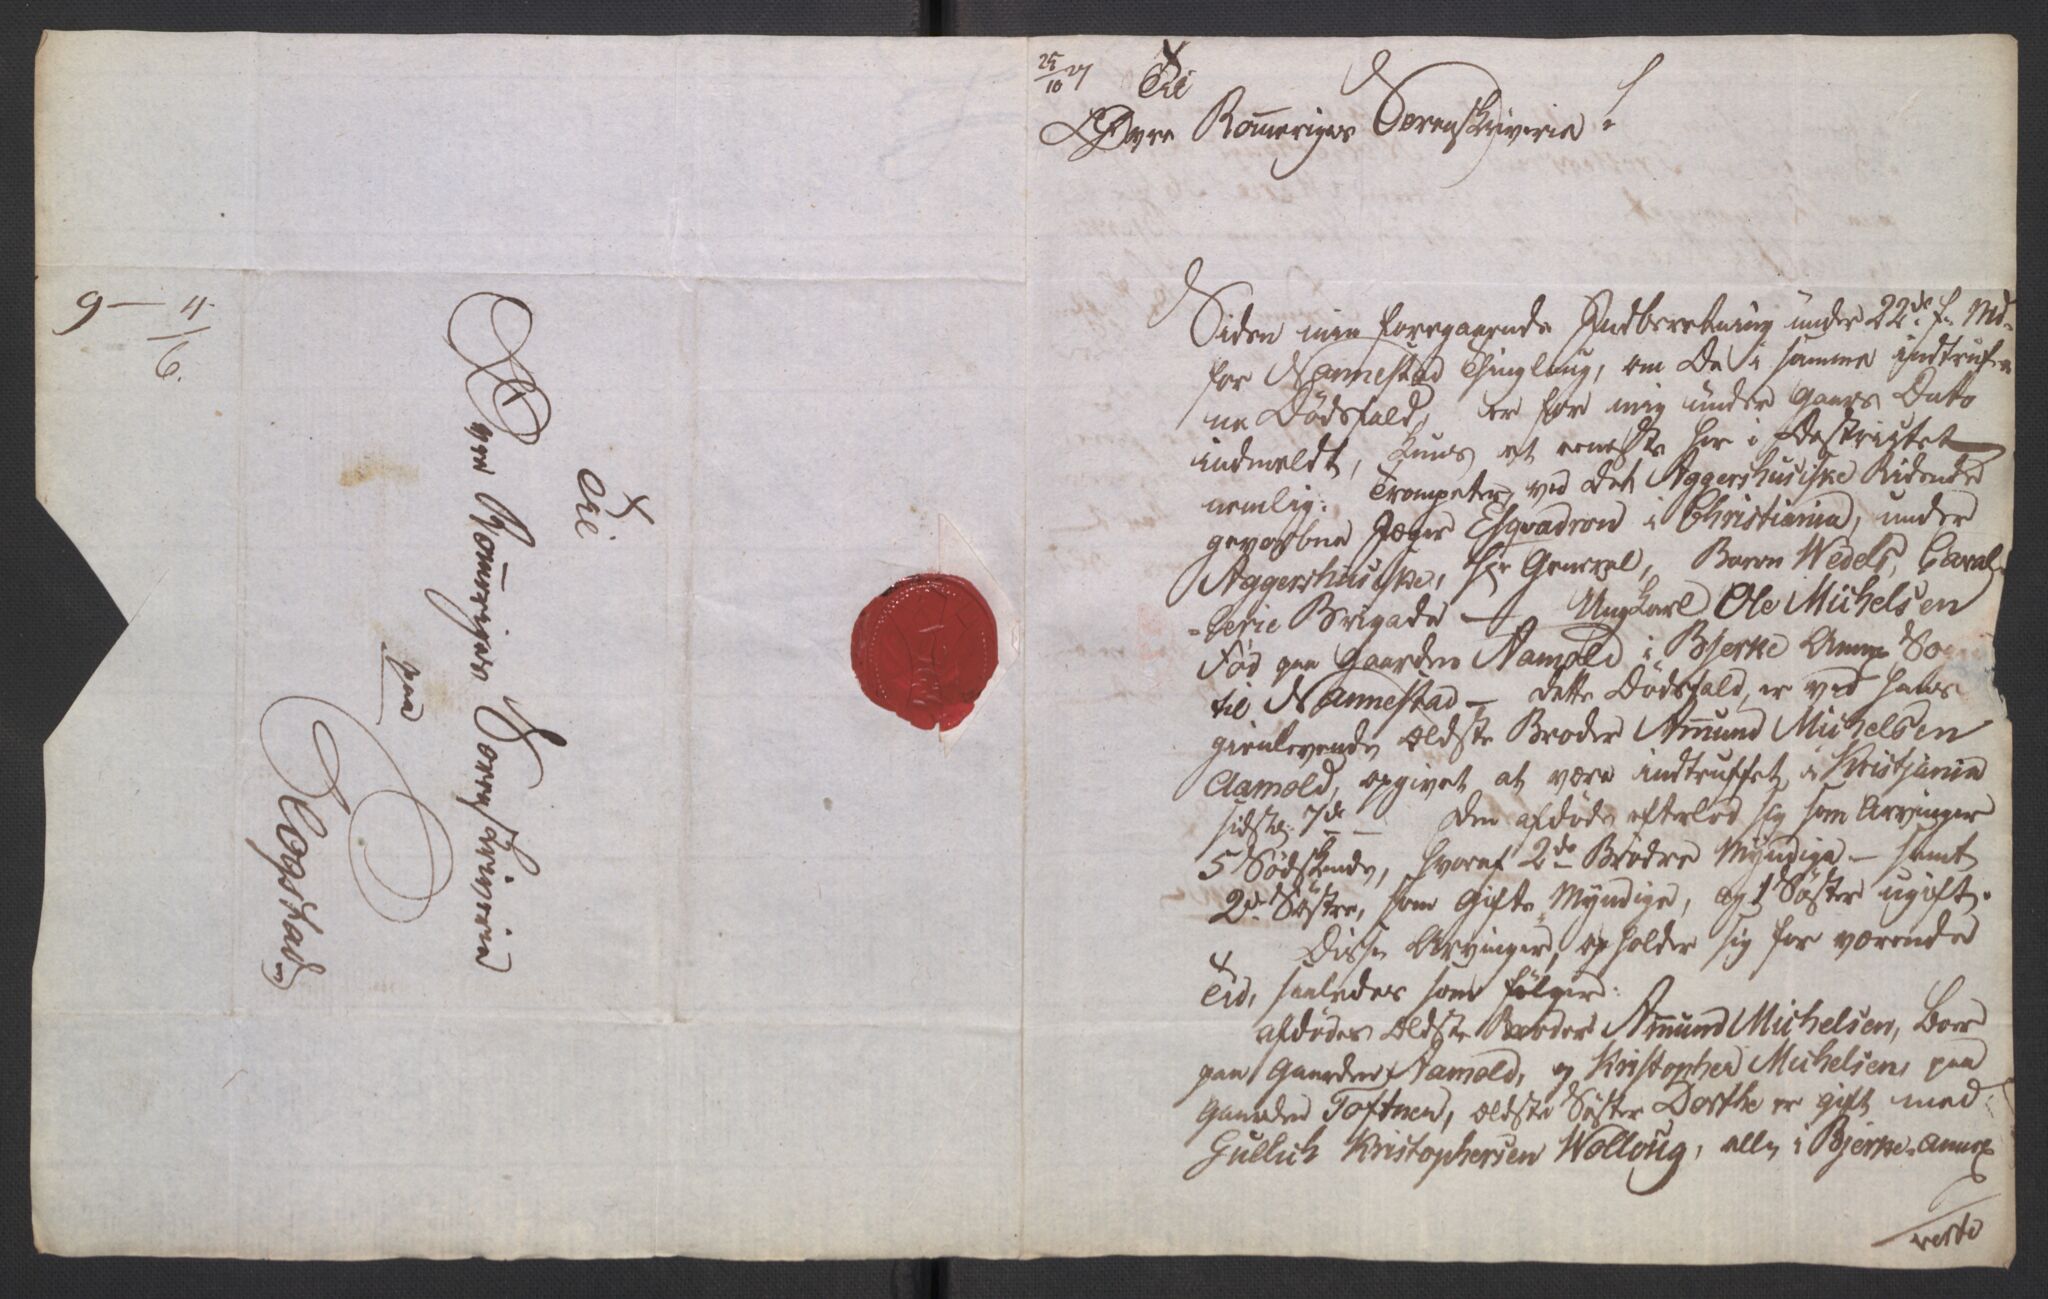 9 — 4/6.
Til
Øvre Romeriges Sorenskriverie
paa
Blogstad
25/10 27
Til
Øvre Romeriges Sorenskriverie
Siden min foregaaende Indberetning under 22de f. Md.
for Nannestad Thinglaug, om De i samme indtrufe-
ne Dødsfald, er for mig under Gaars Dato
indmeldt, kuns et eeneste her i Destrictet
nemlig: Trompeter ved det Aggershusiske Ridende
gevorbne Jæger Esqvadron i Christiania, under
Aggershusiske, Hr General, Baron Wedels, Caval-
lerie Brigade — Ungkarl Ole Michelsen
Fød paa Gaarden Aamold i Bjerke Annex So
til Nannestad — dette Dødsfald, er ved hans
gienlevende Ældste Broder Amund Michelsen
Aamold, opgivet at være indtruffet i Kristjania
sidstl. 7de — Den afdøde efterlod sig som Arvinger
5 Sødskende, hvoraf 2de Brødre Myndige — samt
2de Søstre, som Gifte Myndige, og 1 Søster ugift.
Disse Arvinger, opholder sig for værende
Tid, saaledes som følger:
afdødes Ældste Broder Amund Michelsen, Boer
paa Gaarden Aamold, og Kristopher Michelsen, paa
Gaarden Toftnen, ældste Søster Dorthe er gift med
Gullich Kristophersen Wolloug, alle i Bjerke Annex
verte